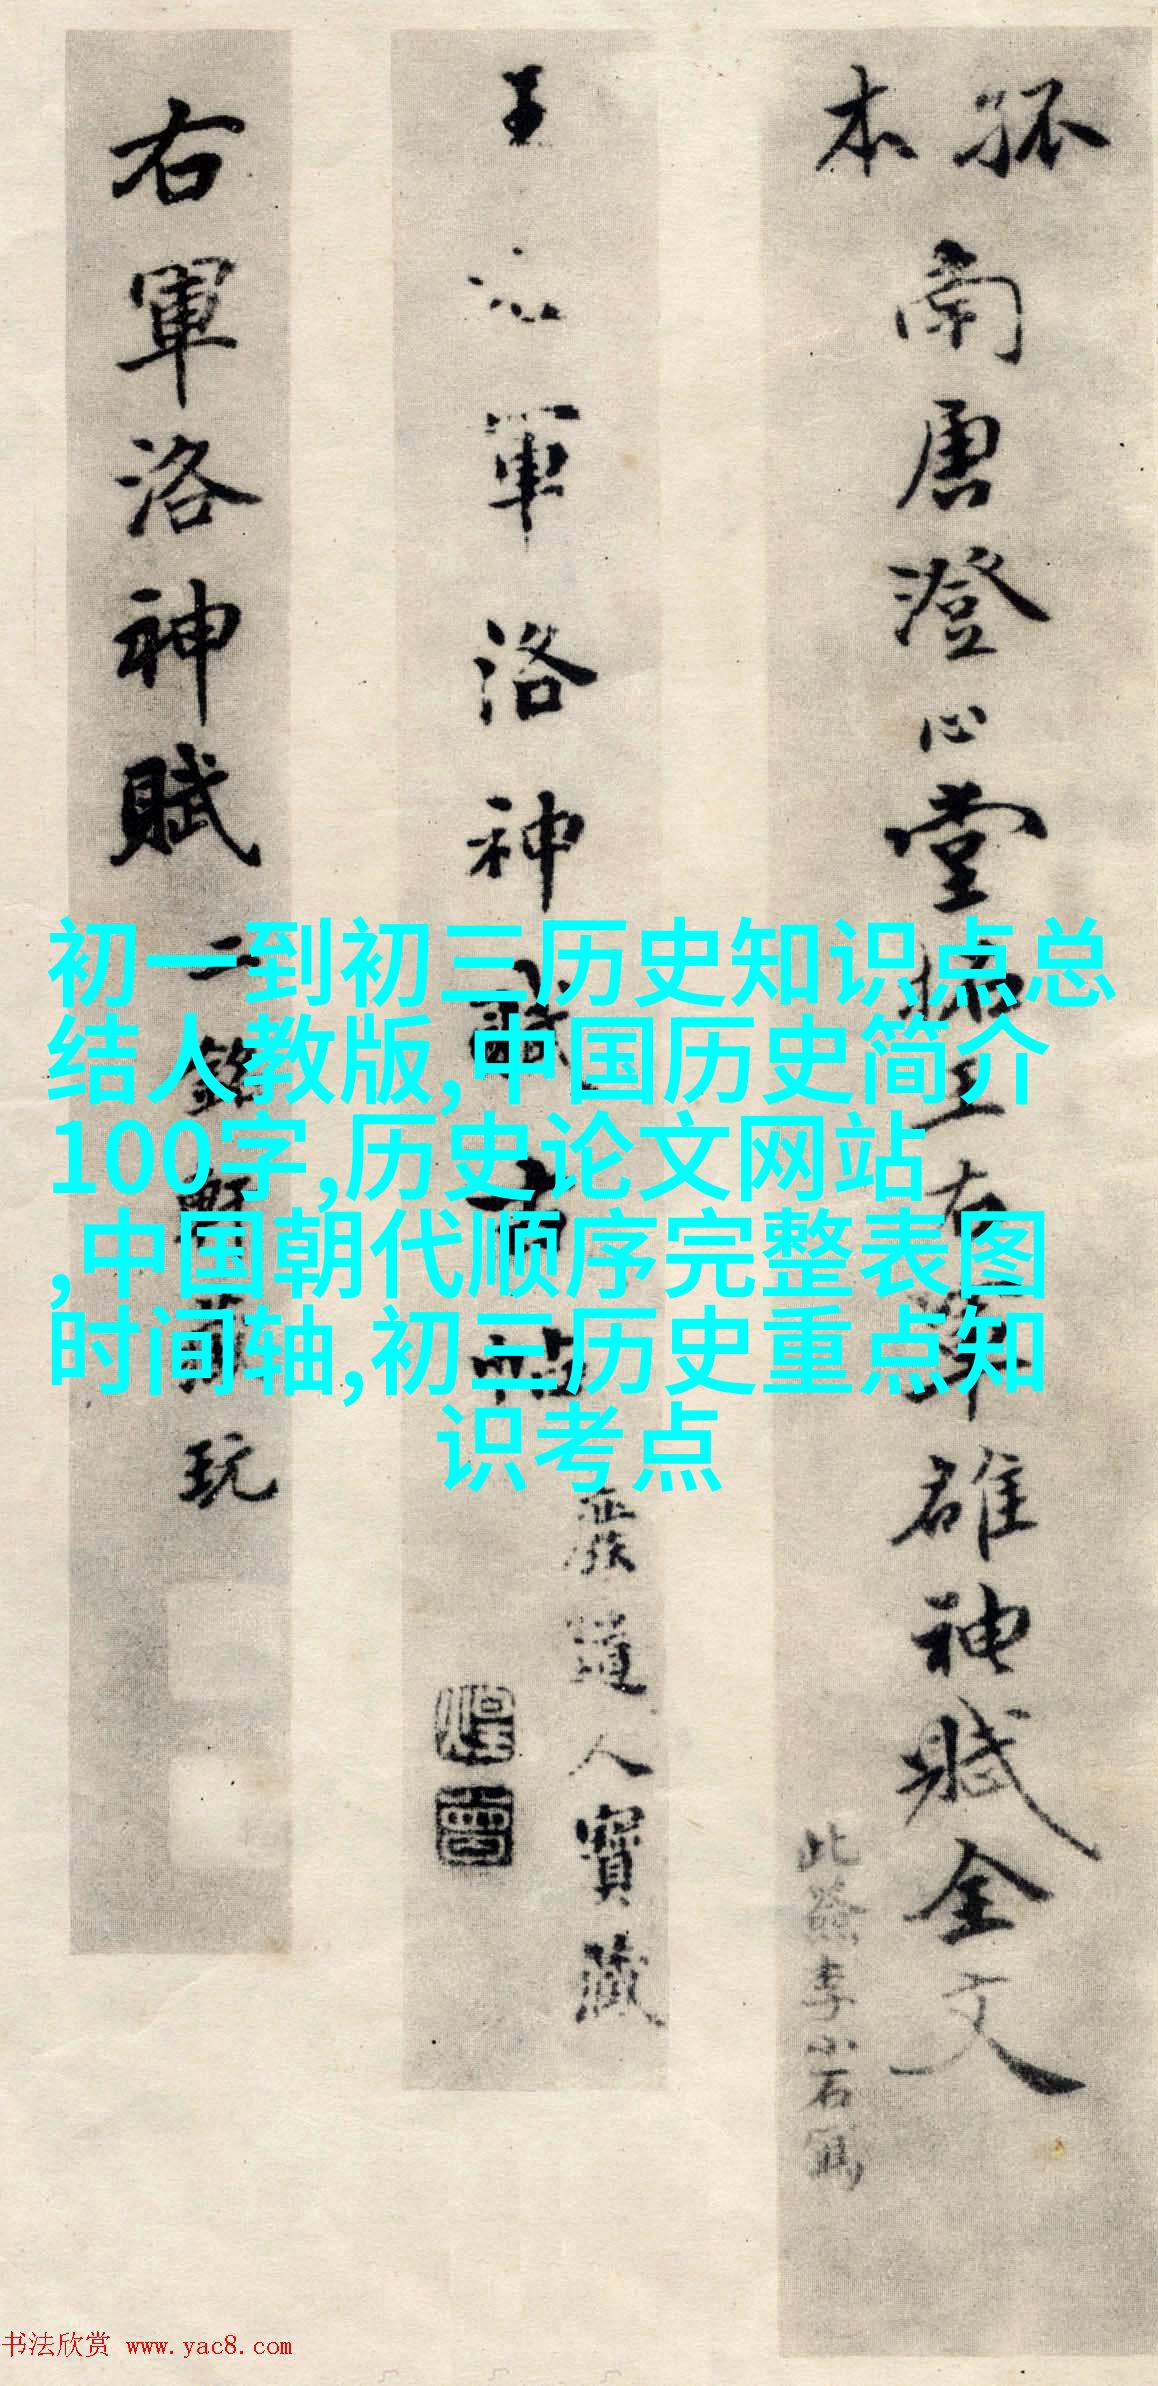 孤本
南唐澄心堂拓王右軍雒神賦全文
此籤李小石寫
王右軍洛神賦
道人寶藏
右軍洛神賦
二銘暫藏玩
初一到初三历史知识点总
结人教版,中国历史简介
100字,历史论文网站
,中国朝代顺序完整表图
时间轴,初三历史重点知
识考点
书法欣赏 www.yac8.com